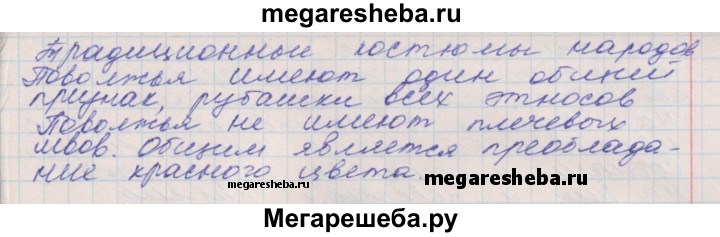 megaresheba.ru
Традиционные костюмы народов
Поволжья имеют один общий
признак, рубашки всех этносов
Поволжья не имеют плечевых
швов. Общим является преоблада-
ние красного цвета
megaresheba.ru megaresheba.ru
Мегарешеба.ру